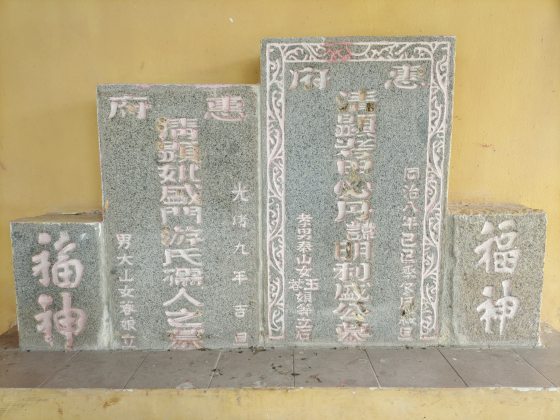 福神
惠府
同治八年己巳季冬月吉旦
清顯考呷必丹諱明利盛公墓
孝男泰山女玉蓉娘等立石
惠府
光緒九年吉旦
清顯妣盛門游氏孺人之墓
男大山女春娘立
福神